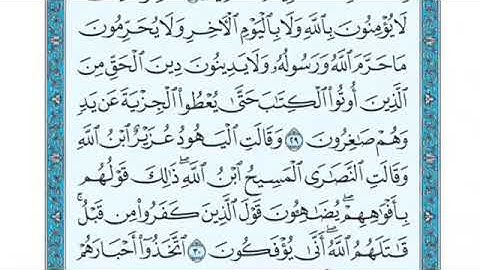 لَا يُؤْمِنُونَ بِٱللَّهِ وَلَا بِٱلْيَوْمِ ٱلْأَخِرِ وَلَا يُحَرِّمُونَ
مَا حَرَّمَ ٱللَّهُ وَرَسُولُهُۥ وَلَا يَدِينُونَ دِينَ ٱلْحَقِّ مِنَ
ٱلَّذِينَ أُوتُوا۟ ٱلْكِتَٰبَ حَتَّىٰ يُعْطُوا۟ ٱلْجِزْيَةَ عَن يَدٍ
وَهُمْ صَٰغِرُونَ ٢٩ وَقَالَتِ ٱلْيَهُودُ عُزَيْرٌ ٱبْنُ ٱللَّهِ
وَقَالَتِ ٱلنَّصَٰرَى ٱلْمَسِيحُ ٱبْنُ ٱللَّهِ ۖ ذَٰلِكَ قَوْلُهُم
بِأَفْوَٰهِهِمْ ۖ يُضَٰهِـُٔونَ قَوْلَ ٱلَّذِينَ كَفَرُوا۟ مِن قَبْلُ ۚ
قَٰتَلَهُمُ ٱللَّهُ ۖ أَنَّىٰ يُؤْفَكُونَ ٣٠ ٱتَّخَذُوٓا۟ أَحْبَارَهُمْ